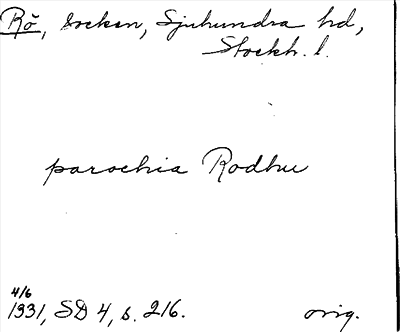 Rö, socken, Sjuhundra hd,
Stockh. l.
parochia Rodhu
4/6
1331, SD 4, s. 216. orig.